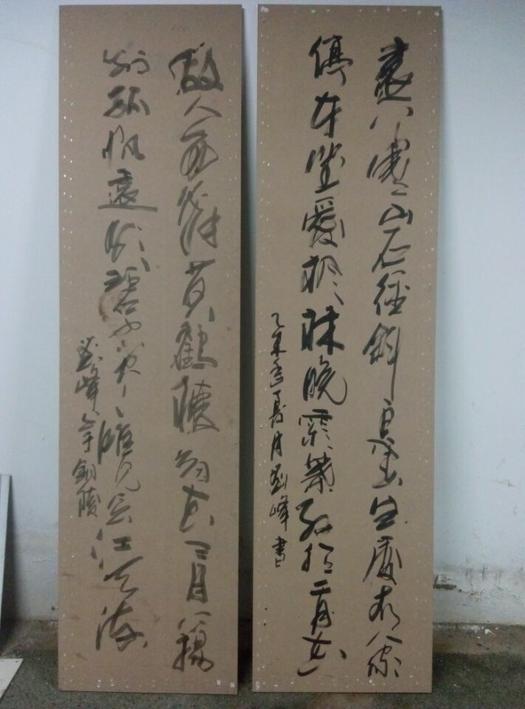 遠上寒山石徑斜白雲生處有人家
停車坐愛楓林晚霜葉紅於二月花
乙未年夏月劉峰書
故人西辞黃鶴樓烟花三月下揚
州孤帆遠影碧空尽唯見長江天
劉峰 銅陵